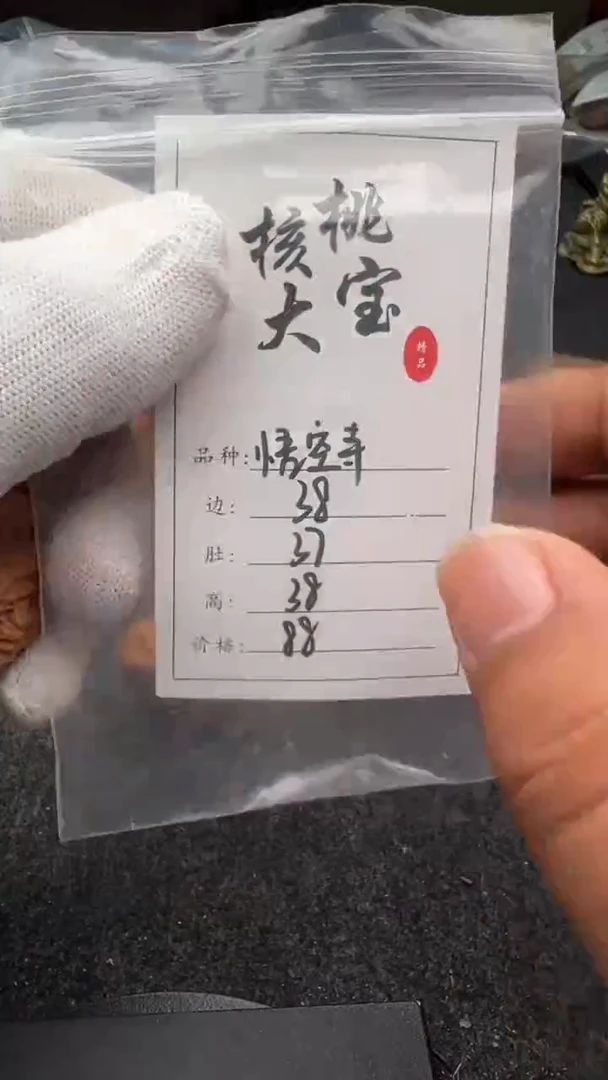 桃宝
核大
精品
品种:悟空寺
边: 38
肚: 37
高: 38
价格: 88